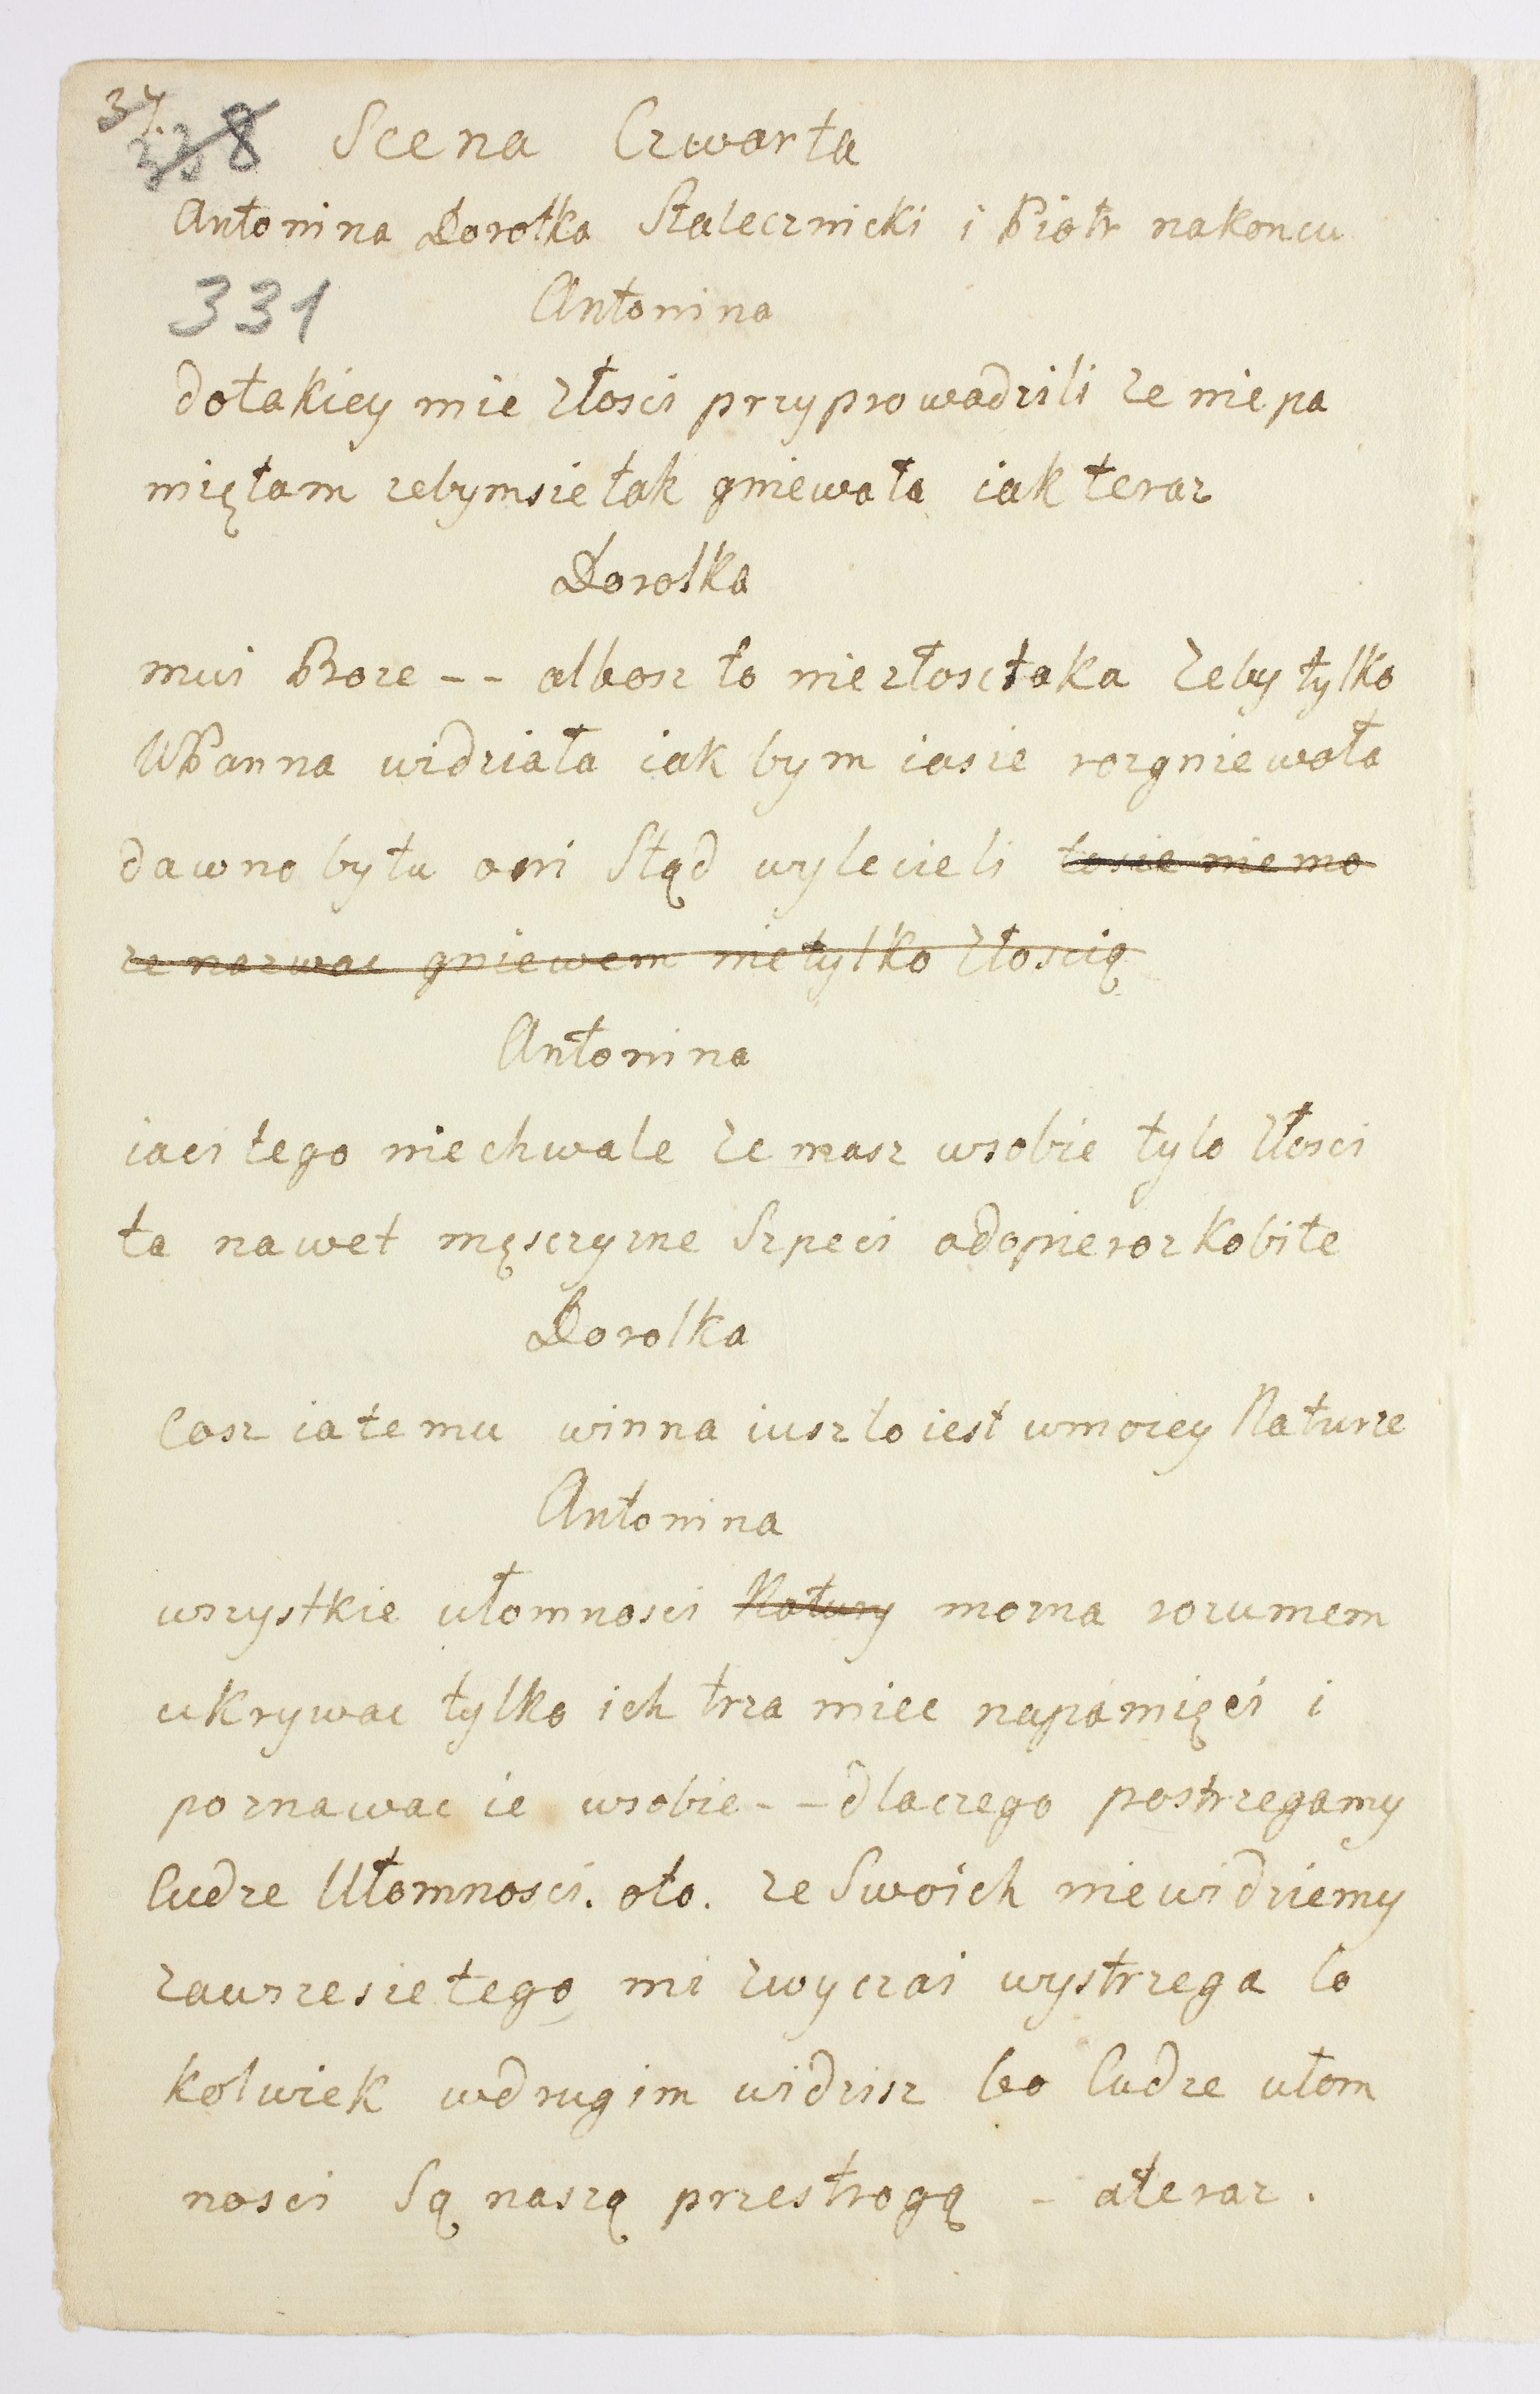 37.
338 Scena Czwarta
Antonina Dorotka Stalecznicki i Piotr nakoncu
331 Antonina
dotakiey mie złosci przyprowadzili ze niepa
miętam zebymsie tak gniewała iak teraz
Dorotka
mui Boze -- albosz to niezłosctaka Zeby tylko
WPanna widziała iak bym iasie rozgniewała
dawno bytu oni Stąd wylecieli tosie niemo
ze nazwac gniewem nietylko Złoscią
Antonina
iaci tego niechwale ze masz wsobie tylo złosci
ta nawet męsczyzne Szpeci adopieroz kobite
Dorotka
Cosz iatemu winna iusz to iest wmoiey Naturze
Antonina
wszystkie ułomnosci Natury mozna rozumem
ukrywac tylko ich trza miec napamięci i
poznawac ie wsobie -- dlaczego postrzegamy
Cudze Ułomnosci. oto. ze Swoich niewidziemy
zawszesie tego mi zwyczai wystrzega Co
kolwiek wdrugim widzisz bo Cudze ułom
nosci Są naszą przestrogą - ateraz.